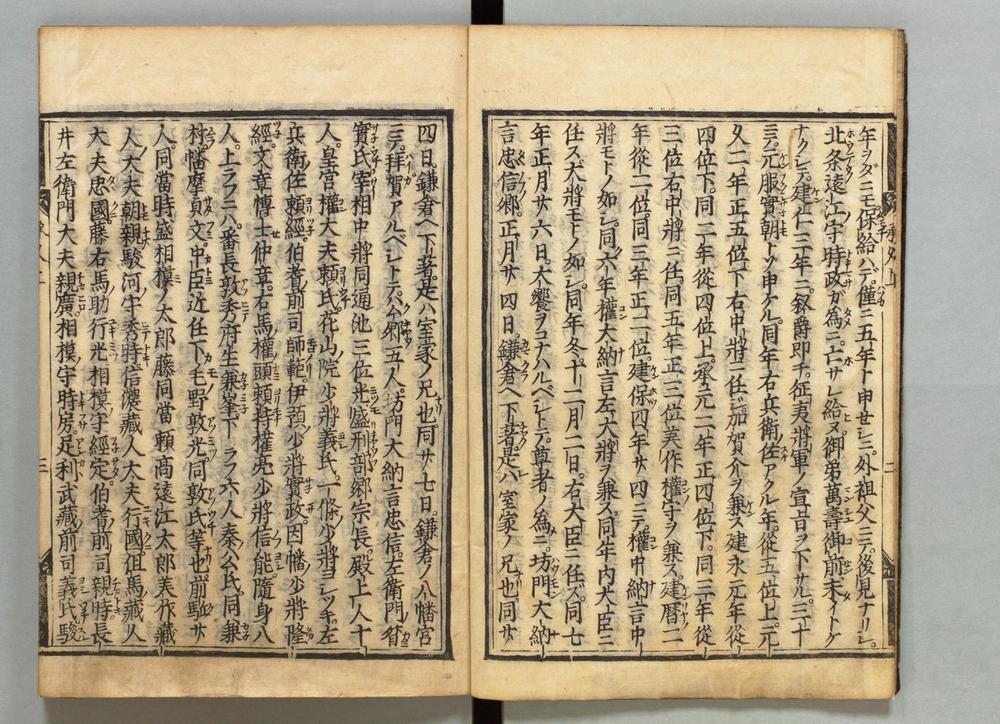 年ヲダニモ保給ハデ。僅ニ五年ト申セシニ。外祖父ニテ後見ナリシ。
北条遠江守時政ガ為ニ。亡サレ給ヌ御弟萬壽御前未イトケ
ナクシテ。建仁三年ニ叙爵即チ。征夷將軍ノ宣旨ヲ下サル。三十
ニテ元服實朝トゾ申ケル。同年右兵衛佐アクル年。從五位上。元
久二年正五位下右中將ニ任ジ。加賀介ヲ兼ス建永元年從
四位下。同二年從四位上。承元二年正四位下。同三年從
三位右中將ニ任。同五年正三位美作權守ヲ兼ス。建暦二
年從二位。同三年正二位。建保四年廿四ニテ。權中納言中
將モトノ如シ。同六年權大納言左大將ヲ兼ス。同年内大臣ニ
任ス大將モトノ如シ。同年冬。十二月二日。右大臣ニ任ズ。同七
年正月廿六日。大饗ヲナハルベシトテ。尊者ノ為ニ。坊門大納
言忠信郷。正月廿四日。鎌倉ヘ下著。是ハ室家ノ兄也。同廿
四日。鎌倉ヘ下著。是ハ室家ノ兄也。同廿七日。鎌倉ノ八幡宮
ニテ。拝賀アルベシトテ。公郷五人。坊門大納言忠信。左衛門督
實氏。宰相中將同通。池三位光盛刑部郷宗長。殿上人十
人。皇宮權大夫頼氏。花山院少將義氏。一條少將ヨシツキ。左
兵衛佐頼經。伯耆前司師範。伊預少將實政。因幡少將隆
經。文章博士仲章。右馬權頭頼持權亮少將信能。隨身八
人。上ラフニハ番長敦秀府生兼峯下ラフ六人秦公氏。同兼
村。幡摩貞文。中臣近任下毛野敦光同敦氏等也前駈廿
人。同當時盛相模ノ太郎藤同當頼高遠江太郎美作藏
人大夫朝親駿河守秀時信濃藏人大夫行國伹馬藏人
大夫忠國。藤右馬助行光相模守經定伯耆前司親時長
井左衛門大夫親廣。相模守時房。足利武藏前司義氏駿